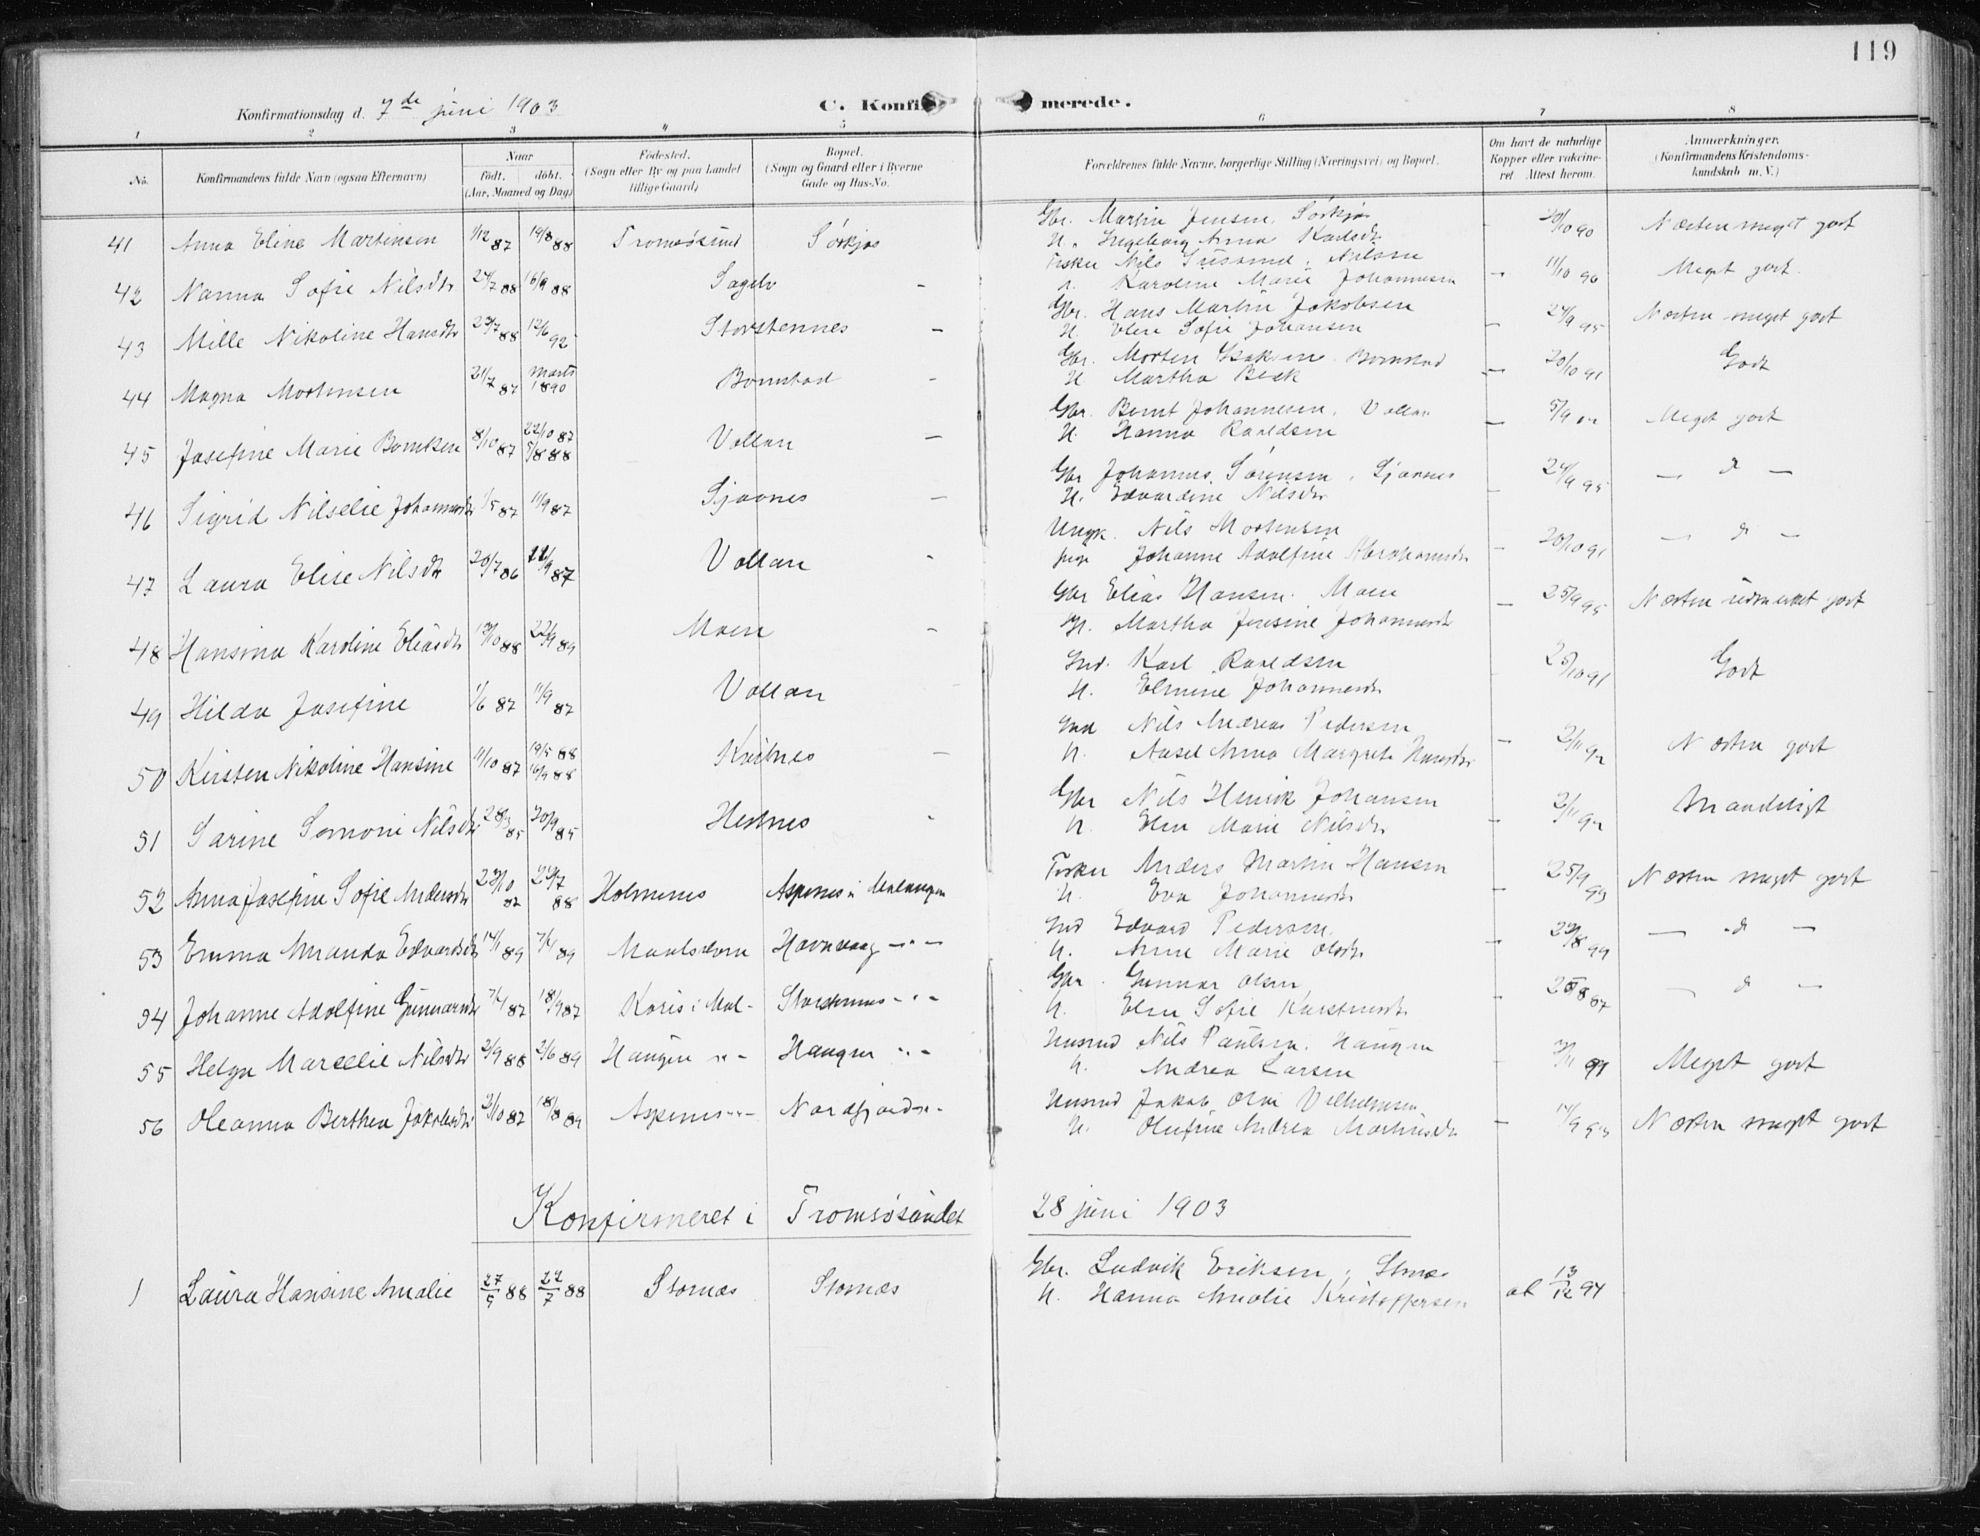 119
Konfirmationsdag d. 7de juni 1903
C. Konfirmerede.
1 2 3 4 5 6 7 8
No.
Konfirmandens fulde Navn (ogsaa Efternavn)
Naar
født. døbt.
(Aar, Maaned og Dag)
Fødested.
(Sogn eller By og paa Landet
tillige Gaard)
Bopæl.
(Sogn og Gaard eller i Byerne
Gade og Hus-No.
Forældrenes fulde Navne, borgerlige Stilling (Næringsvei) og Bopæl.
Om havt de naturlige
Kopper eller vakcine-
ret Attest herom.
Anmærkninger.
(Konfirmandens Kristendoms-
kundskab m. V.)
41 Anna Eline Martinsen 1/12 87 19/8 88 Tromsøsund Sørkjos Gbr. Martin Jensen, Sørkjos 20/10 90 Næsten meget godt
H. Ingeborg Anna Karlsdtr
42 Nanna Sofie Nilsdtr 24/7 88 16/9 88 Sagelv - Fisker Nils Nilsen - 11/10 90 Meget godt
Karoline Marie Johannesen
43 Mille Nikoline Hansdtr 29/7 88 12/6 92 Storstennes - Gbr. Hans Martin Jakobsen - 24/9 95 Næsten meget godt
H. Sofie Johansen
44 Magna Mortensen 21/7 87 marts 1890 Bomstad - Gbr. Morten Isaksen Bomstad - 20/10 91 Godt
H. Martha Beck
45 Josefine Marie Berntsen 8/10 87 22/10 87 5/8 88 Vollan - Gbr. Bernt Johannesen, Vollan - 5/9 Meget godt
H. Hanna Karldsen
46 Sigrid Nilselie Johannesdtr 1/5 87 11/9 87 Sjøvnes - Gbr Johannes Sørensen, Sjøvnes - 24/9 95 - d -
H. Edvardine Nilsdtr
47 Laura Elise Nilsdtr 20/7 86 11/9 87 Vollan - Ungk. Nils Mortensen - 20/10 91 - d -
pige Johanne Adolfine Abrahamsdtr
48 Hansina Karoline Eliasdtr 19/10 88 22/9 89 Moen - Gbr Elias Hansen. Moen - 25/9 95 Næsten udmærket godt
H. Martha Jensine Johannesdtr
49 Hilda Josefine 1/6 87 11/9 87 Vollan Ind. Karl Karldsen - 25/10 91 Godt
H. Elmine Johannesdtr
50 Kirsten Nikoline Hansine 11/10 87 19/5 88 16/9 88 - Ind Nils Andreas Pedersen - 2/11 92 Næsten godt
H. Aasel Anna Margrete Hansdtr
51 Sarine Simonie Nilsdtr 28/3 85 20/9 85 Hestnes - Gbr Nils Henrik Johansen - 2/11 92 Maadeligt
H. Elen Marie Nilsdtr
52 Anna Josefine Sofie Andersdtr 23/10 87 29/7 88 Holmenes Aspenes i Malangen Fisker Anders Martin Hansen - 25/9 99 Næsten meget godt
H. Eva Johannesdtr
53 Emma Amanda Edvardsdtr 14/1 89 7/4 89 Maalselven Havnvaag -"- Ind Edvard Pedersen - 29/8 99 - d -
H. Anne Marie Olsdtr
54 Johanne Adolfine Gunnarsdtr 7/4 87 18/9 87 Koris i Mal- -"- Gbr. Gunnar Olsen - 20/8 87 - d -
H. Elen Sofie Karstensdtr
55 Helga Marselie Nilsdtr 2/9 88 2/6 89 Haugen -"- Haugen -"- Husmd Nils Paulsen. Haugen 3/11 99 Meget godt
H. Andrea Larsen
56 Oleanna Berthea Jakobsdtr 2/10 87 18/8 89 Aspenes -"- Nordfjord -"- Husmd Jakob Olai Vilhelmsen - 14/9 93 Næsten meget godt
H. Olufine Andrea Martinsdtr
Konfirmeret i Tromsøsundet 28 juni 1903
1 Laura Hansine Amalie 27/5 88 22/7 88 Stornæs Stornæs Gbr. Ludvik Eriksen, Stornæs at 13/12 94
H. Hanna Amalie Kristoffersen